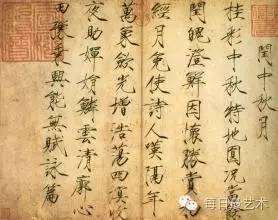 閏中秋月
桂彩中秋特地圓況當餘
閏魄澄鮮因懷勝賞初
經月免使詩人嘆隔年
萬象歛光增浩蕩四溟收
夜助嬋娟鱗雲清廓心
田豫乘興能無賦詠篇
每日最艺术